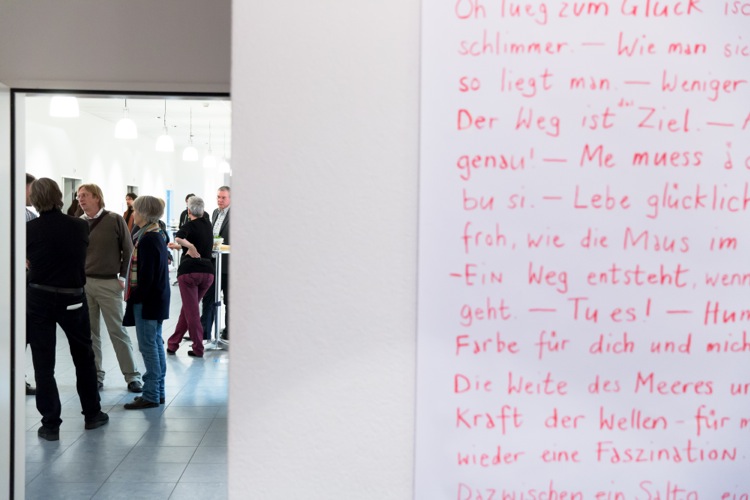 Oh lueg zum Glück isc
schlimmer. — Wie man sic
so liegt man. — Weniger
Der Weg ist das Ziel. —
genau! — Me muess
bu si. — Lebe glücklich
froh, wie die Maus im
-EIN Weg entsteht, wenn
geht. — Tu es! — Hum
Farbe für dich und mich
Die Weite des Meeres un
Kraft der Wellen - für m
wieder eine Faszination.
Dazwischen ein Salto, ein